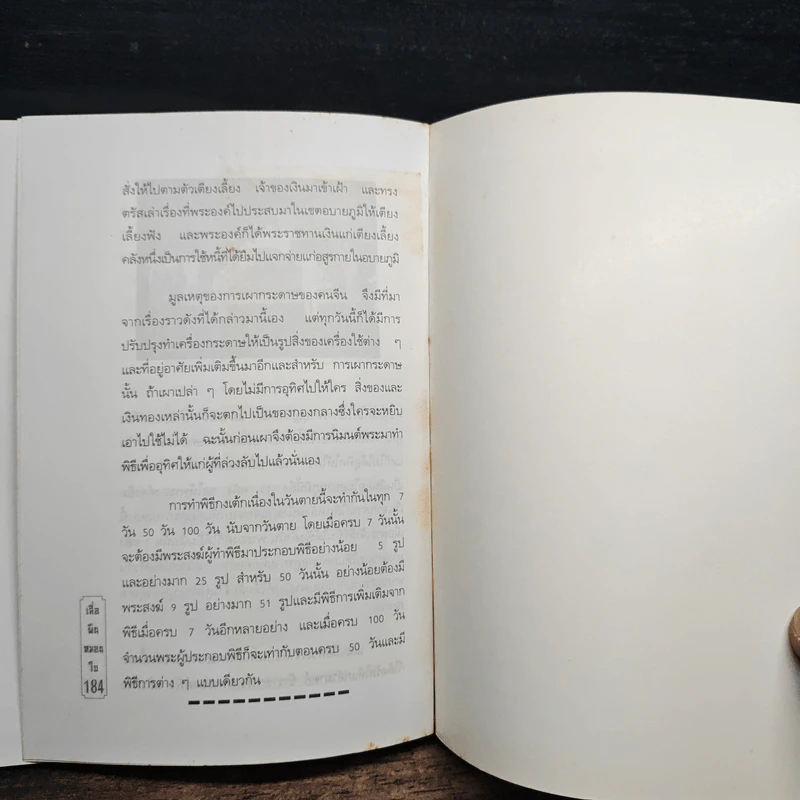 สั่งให้ไปตามตัวเตียงเลี้ยง เจ้าของเงินมาเข้าเฝ้า และทรง
ตรัสเล่าเรื่องที่พระองค์ไปประสบมาในเขตอบายภูมิให้เตียง
เลี้ยงฟัง และพระองค์ก็ได้พระราชทานเงินแก่เตียงเลี้ยง
คลังหนึ่งเป็นการใช้หนี้ที่ได้ยืมไปแจกจ่ายแก่อสุรกายในอบายภูมิ
มูลเหตุของการเผากระดาษของคนจีน จึงมีที่มา
จากเรื่องราวดังที่ได้กล่าวมานี้เอง แต่ทุกวันนี้ก็ได้มีการ
ปรับปรุงทำเครื่องกระดาษให้เป็นรูปสิ่งของเครื่องใช้ต่าง ๆ
และที่อยู่อาศัยเพิ่มเติมขึ้นมาอีกและสำหรับ การเผากระดาษ
นั้น ถ้าเผาเปล่า ๆ โดยไม่มีการอุทิศไปให้ใคร สิ่งของและ
เงินทองเหล่านั้นก็จะตกไปเป็นของกองกลางซึ่งใครจะหยิบ
เอาไปใช้ไม่ได้ ฉะนั้นก่อนเผาจึงต้องมีการนิมนต์พระมาทำ
พิธีเพื่ออุทิศให้แก่ผู้ที่ล่วงลับไปแล้วนั่นเอง
การทำพิธีกงเต้กเนื่องในวันตายนี้จะทำกันในทุก 7
วัน 50 วัน 100 วัน นับจากวันตาย โดยเมื่อครบ 7 วันนั้น
จะต้องมีพระสงฆ์ผู้ทำพิธีมาประกอบพิธีอย่างน้อย 5 รูป
และอย่างมาก 25 รูป สำหรับ 50 วันนั้น อย่างน้อยต้องมี
พระสงฆ์ 9 รูป อย่างมาก 51 รูปและมีพิธีการเพิ่มเติมจาก
พิธีเมื่อครบ 7 วันอีกหลายอย่าง และเมื่อครบ 100 วัน
จำนวนพระผู้ประกอบพิธีก็จะเท่ากับตอนครบ 50 วันและมี
พิธีการต่าง ๆ แบบเดียวกัน
184